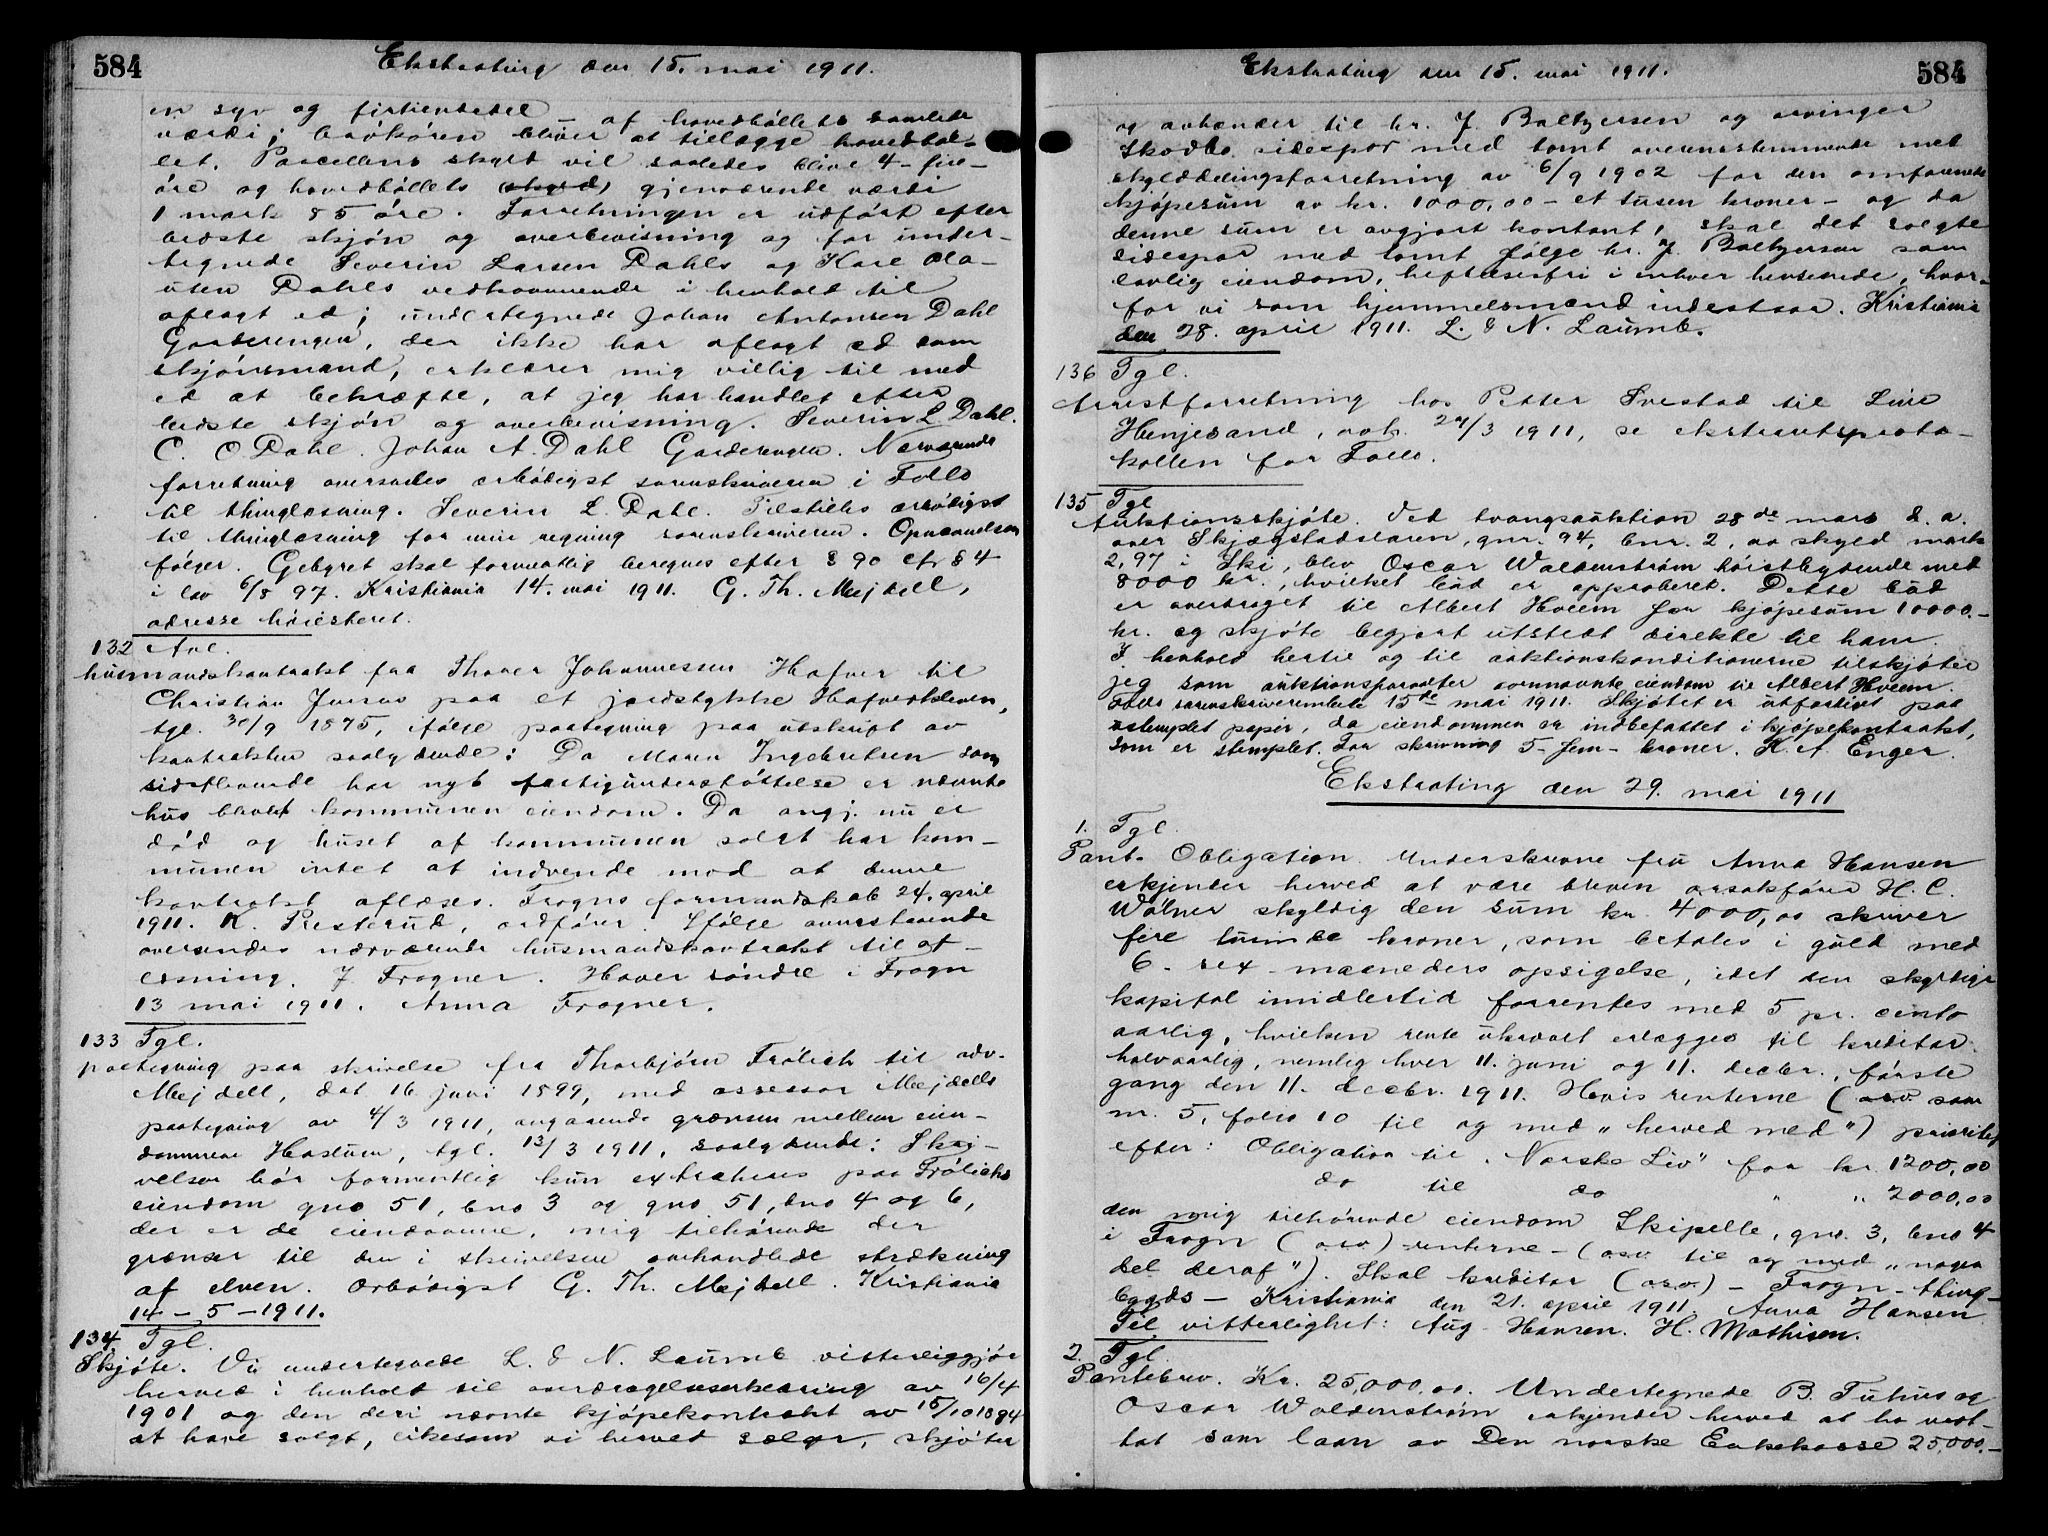 584
Ekstrating den 15. mai 1911.
en syv og firtiendedel – af hovedbøllets samlede
værdi; brøkøren bliver at tillægge hovedbøl-
let. Parcellens skyld vil saaledes blive 4 – fire –
øre og hovedbøllets (skyld) gjenværende værdi
1 mark 85 øre. Forretningen er udført efter
bedste skjøn og overbevisning og for under-
tegnede Severin Larsen Dahls og Karl Ola-
usen Dahls vedkommende i henhold til
aflagt ed; undertegnede Johan Antonsen Dahl
Garderengen, der ikke har aflagt ed som
skjønsmand, erklærer mig villig til med
ed at bekræfte, at jeg har handlet efter
bedste skjøn og overbevisning. Severin L. Dahl.
C. O Dahl. Johan A. Dahl Garderengen. Nærværende
forretning oversendes ærbødigst sorenskriveren i Follo
til thinglæsning. Severin L. Dahl. Tilstilles ærbødigst
til thinglæsning for min regning sorenskriveren. Opnævnelsen
følger. Gebyret skal formentlig beregnes efter § 90 cfr § 4
i lov 6/8 97. Kristiania 14. mai 1911. G. Th. Mejdell,
adresse høiesteret.
132 Avl.
husmandskontrakt fra Thorer Johannessen Hafver til
Christian Jensen paa et jordstykke Hafverkleven,
tgl. 30/9 1875, ifølge paategning paa utskrift av
kontrakten saalydende: Da Maren Ingebretsen som
sidstlevende har nydt fattigunderstøttelse er nævnte
hus blevet kommunen eiendom. Da angj. nu er
død og huset af kommunen solgt har kom-
munen intet at indvende mod at denne
kontrakt aflæses. Frogns formandskab 24. april
1911. K. Presterud, ordfører. Ifølge ovenstaaende
oversendes nærværende husmandskontrakt til af-
læsning. J. Frogner. Haver søndre i Frogn
13 mai 1911. Anna Frogner.
133 Tgl.
paategning paa skrivelse fra Thorbjørn Frølich til adv.
Mejdell, dat. 16 juni 1899, med assessor Mejdells
paategning av 4/3 1911, angaaende grænsen mellem eien-
dommene Hastum, tgl. 13/3 1911, saalydende: Skri-
velsen bør formentlig kun extraheres paa Frølichs
eiendom gno 51, bno 3 og gno 51, bno 4 og 6,
der er de eiendomme, mig tilhørende der
grænser til den i skrivelsen omhandlede strækning
af elven. Ærbødigst G. Th. Mejdell. Kristiania
14 – 5 – 1911.
134. Tgl.
Skjøte. Vi undertegnede L. & N. Laumb vitterliggjør
herved i henhold til overdragelseserklæring av 16/4
1901 og den deri nævnte kjøpekontrakt av 15/10 1894
at have solgt, likesom vi herved sælger, skjøter
584
Ekstrating den 15. mai 1911.
og avhænder til hr. J. Baltzersen og arvinger
Skodbo sidespor med tomt overensstemmende med
skylddelingsforretning av 6/9 1902 for den omforenede
kjøpesum av kr. 1000,00 – et tusen kroner – og da
denne sum er avgjort kontant, skal det solgte
sidespor med tomt følge hr. J. Baltzersen som
lovlig eiendom, heftelsesfri i enhver henseende, hvor-
for vi som hjemmelsmænd indestaar. Kristiania
den 28. april 1911. L. & N. Laumb.
136 Tgl.
Arrestforretning hos Petter Svestad til Line
Henjesand, avh. 24/3 1911, se ekstraretsproto-
kollen for Follo.
135 Tgl
Auktionsskjøte. Ved tvangsauktion 28de mars d. a.
over Skjægstadslaren, gnr. 94, bnr. 2, av skyld mark
2,97 i Ski, blev Oscar Waldenstrøm høistbydende med
8000 kr., hvilket bud er approberet. Dette bud
er overdraget til Albert Hveem for kjøpesum 10000.-
kr. og skjøte begjært utstedt direkte til ham.
I henhold hertil og til auktionskonditionerne tilskjøter
jeg som auktionsforvalter ovennævnte eiendom til Albert Hveem.
Follo sorenskriverembete 15de mai 1911. Skjøtet er utfærdiget paa
ustemplet papir, da eiendommen er indbefattet i kjøpekontrakt,
som er stemplet. For skrivning 5 – fem – kroner. K. A. Enger.
Ekstrating den 29. mai 1911
1. Tgl.
Pant. Obligation. Underskrevne fru Anna Hansen
erkjender herved at være bleven orsakfører H. C.
Wølner skyldig den sum kr. 4000,00 skriver
fire tusinde kroner, som betales i guld med
6 – sex – maaneders opsigelse, idet den skyldige
kapital imidlertid forrentes med 5 pr. cento
aarlig, hvilken rente ukrævet erlægges til kreditor
halvaarlig, nemlig hver 11. juni og 11. decbr., første
gang den 11. decbr. 1911. Hvis renterne (osv. som
nr. 5, folio 10 til og med „herved med“) prioritet
efter: Obligation til „Norske Liv“ for kr. 1200,00
do til do „ „ 2000,00
den mig tilhørende eiendom Skipelle, gno. 3, bno 4
i Frogn (osv) renterne – (osv til og med „nogen
del deraf“). Skal kreditor (osv.) – Frogn – thing-
bygds – Kristiania den 21. april 1911. Anna Hansen
Til vitterlighet: Aug. Hansen. H. Mathisen.
2. Tgl.
Pantebrev. Kr. 25,000,00. Undertegnede B. Tuhus og
Oscar Waldenstrøm erkjender herved at ha mot-
tat som laan av Den norske Enkekasse 25,000.-